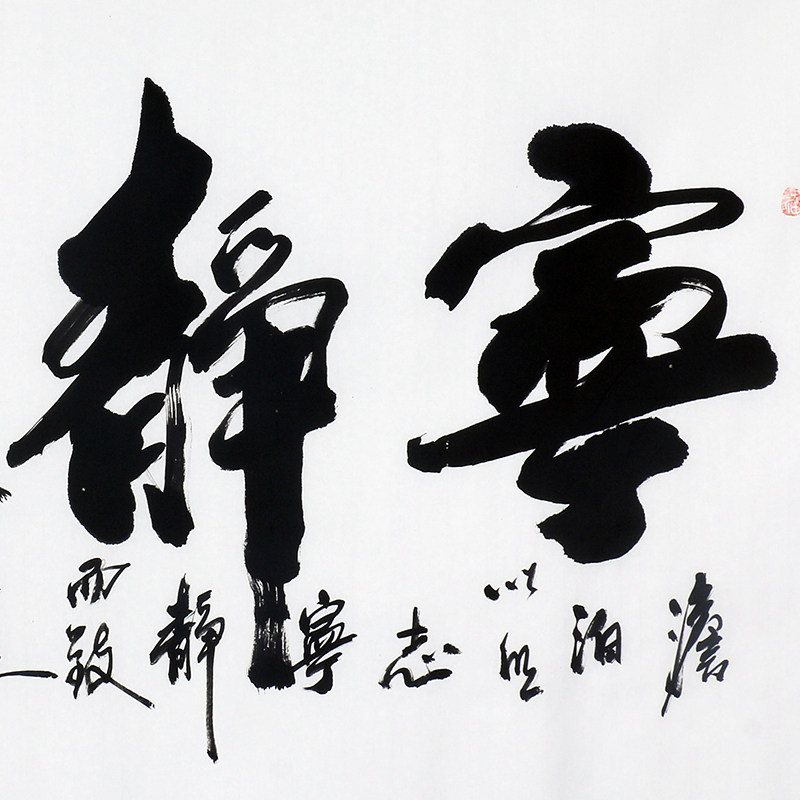 寧靜
澹泊以明志寧靜而致